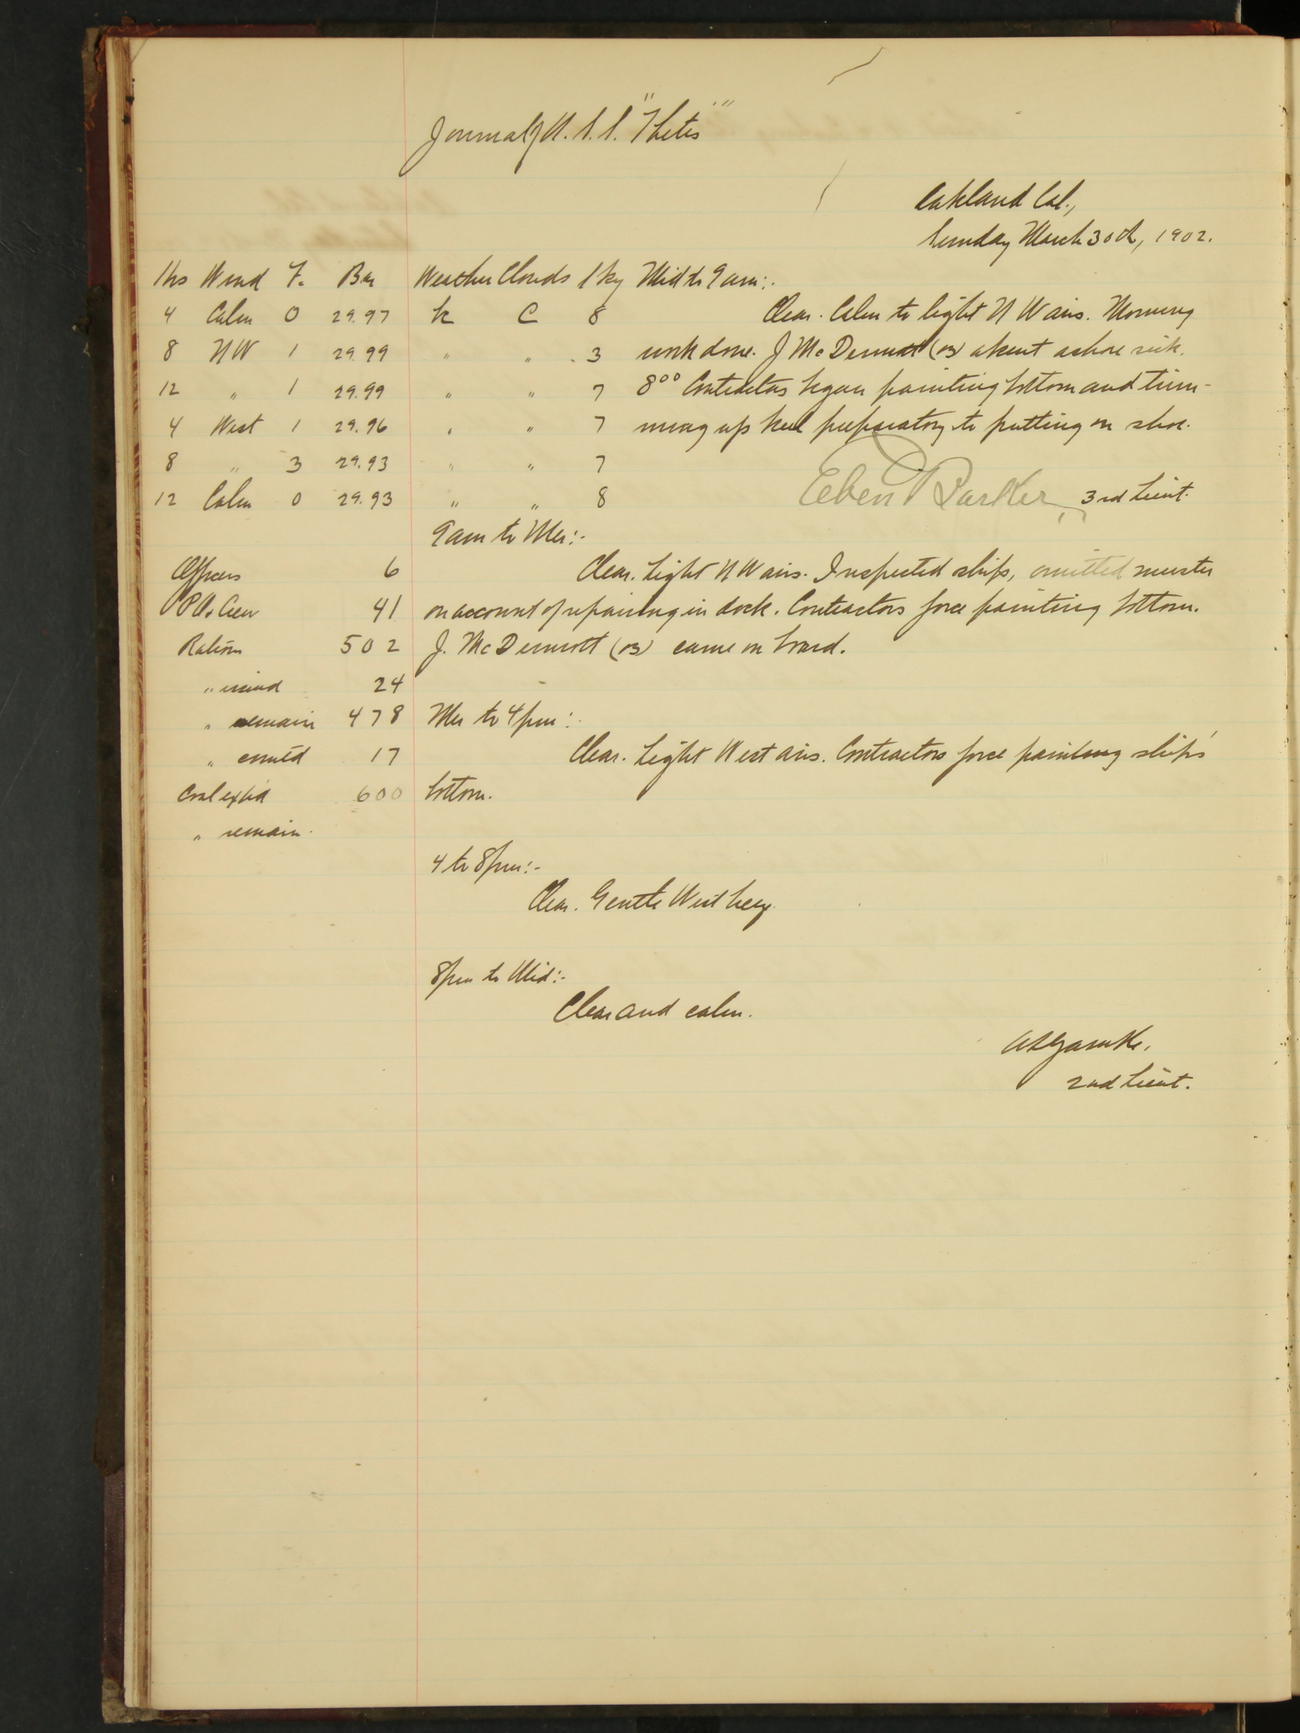 Journal of U.S.S. "Thetis"
Oakland Cal.,
Sunday March 30th, 1902.
Hrs Wind F. Bar Weather Clouds Sky Mid to 9am:-
4 Calm 0 29.97 C 8 Clear. Calm to light N W airs. Morning
8 NW 1 29.99 " " 3 work done. J McDermott (03) absent ashore sick.
12 " 1 29.99 " " 7 8°° Contractors began painting bottom and trim-
4 West 1 29.96 " " 7 ming up keel preparatory to putting on shoe.
8 " 3 29.93 " " 7
12 Calm 0 29.93 " " 8 Eben Barker, 3rd Lieut.
9am to Mer:-
Officers 6 Clear. Light N W airs. Inspected ship, omitted muster
P.O. & Crew 41 on account of repairing in dock. Contractors force painting bottom.
Rations 502 J. McDermott (03) came on board.
" issued 24
" remain 478 Mer to 4pm:-
" comtd 17 Clear. Light West airs. Contractors force painting ship's
Coal expd 600 bottom.
" remain.
4 to 8pm:-
Clear. Gentle West breeze.
8pm to Mid:-
Clear and calm.
2nd Lieut.